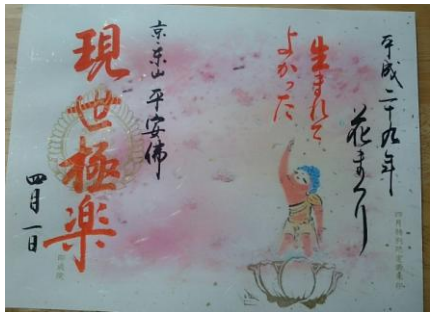 平成二十九年
花まつり
生まれて
よかった
京・東山 平安佛
現世極楽
四月一日